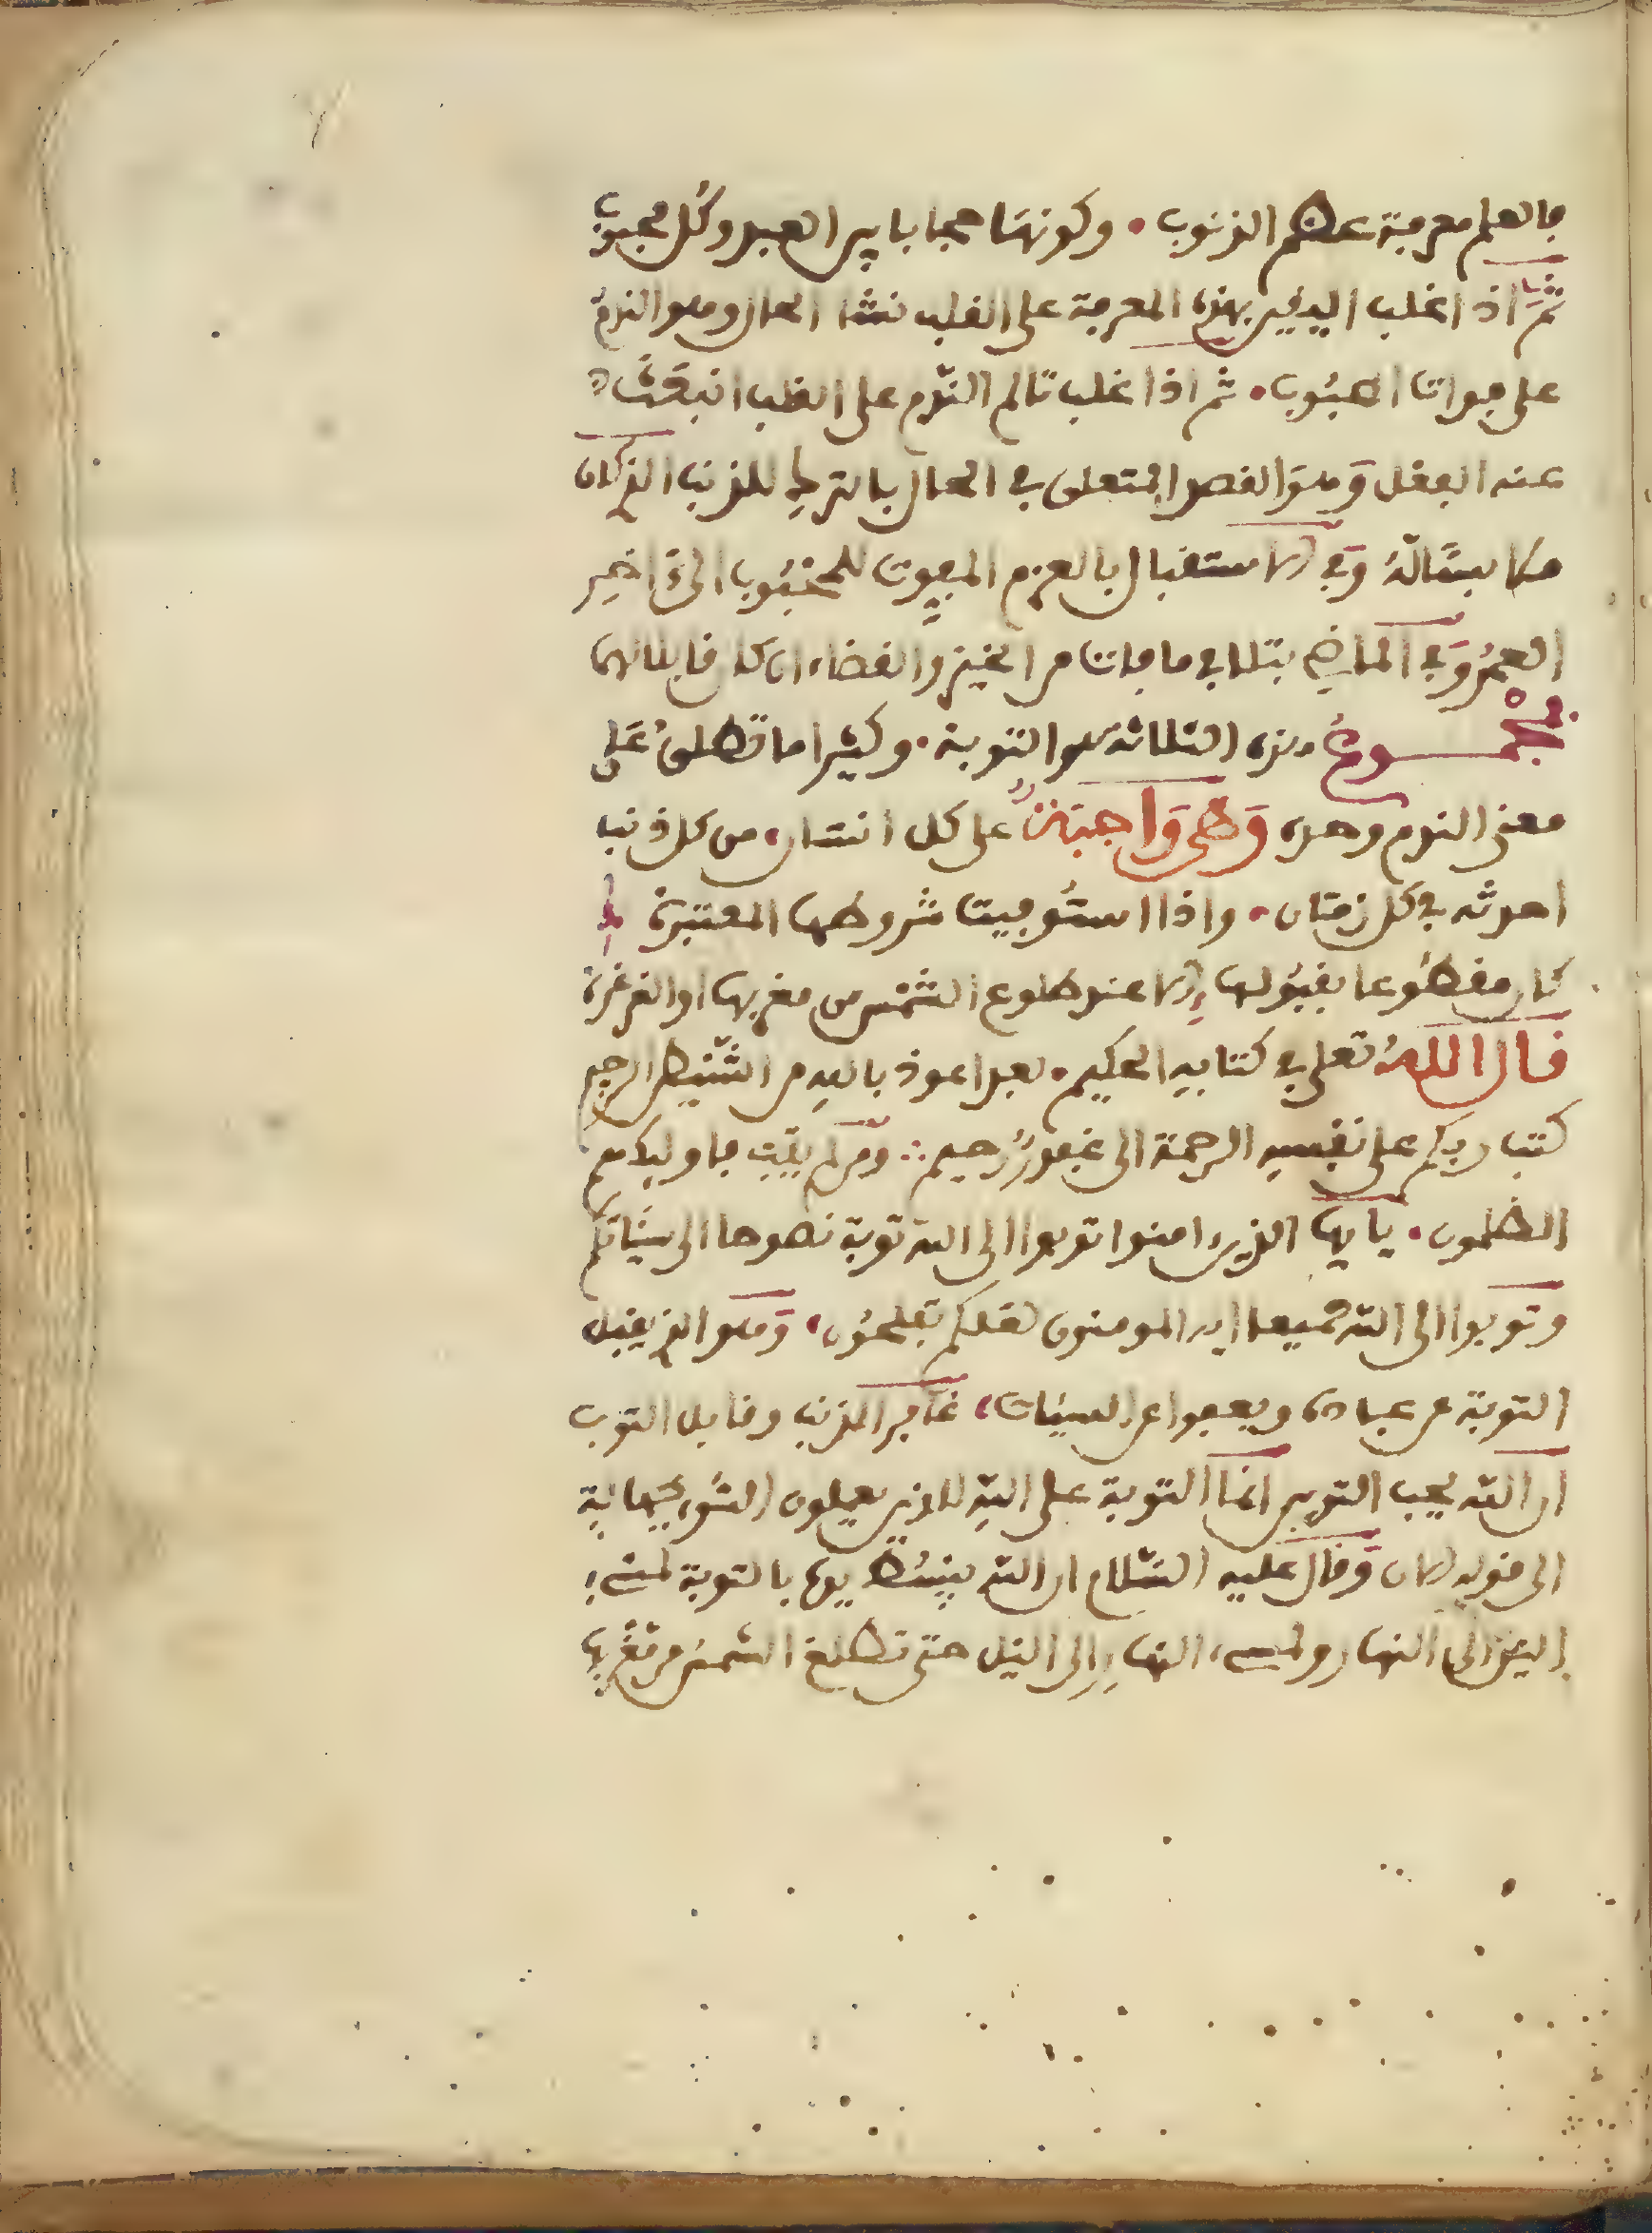 فالعلم معرفة عظم الذنوب • وكونها حجابا بين العبد وكل محبوب
ثم اذا غلب اليقين بهذه المعرفة على القلب نشا الحال وهو الندم
على فوات المحبوب • ثم اذا غلب تالم الندم على القلب انبعث
عنه الفعل وهو القصد المتعلق في الحال بالترك للذنب الذي كان
ملابسا له وفي الاستقبال بالعزم المفوت للمحبوب الى اخير
العمر وفي الماضي بتلافي ما فات من الخير والقضاء ان كان قابلا لهما
فمجموع هذه الثلاثة هو التوبة • وكثيرا ما تطلق على
معنى الندم وحده وهي واجبة على كل انسان من كل ذنب
احدثه في كل زمان • واذا استوفيت شروطها المعتبرة
كان مقطوعا بقبولها الا عند طلوع الشمس من مغربها او الغرغرة
قال الله تعلى في كتابه الحكيم • بعد اعوذ بالله من الشيطن الرجيم
كتب ربكم على نفسه الرحمة الى غفور رحيم ∴ ومن لم يتب فاوليك هم
الظلمون • يايها الذين امنوا توبوا الى الله توبة نصوحا الى سيئاتكم
وتوبوا الى الله جميعا ايه المومنون لعلكم تفلحون • وهو الذي يقبل
التوبة عن عباده ويعفوا عن السيئات غافر الذنب وقابل التوب
ان الله يحب التوبين انما التوبة على الله للذين يعملون السوء بجهالة
الى قوله الان وقال عليه السلام ان الله يبسط يده بالتوبة لمسيء
اليل الى النهار ولمسيء النهار الى اليل حتى تطلع الشمس من مغربها